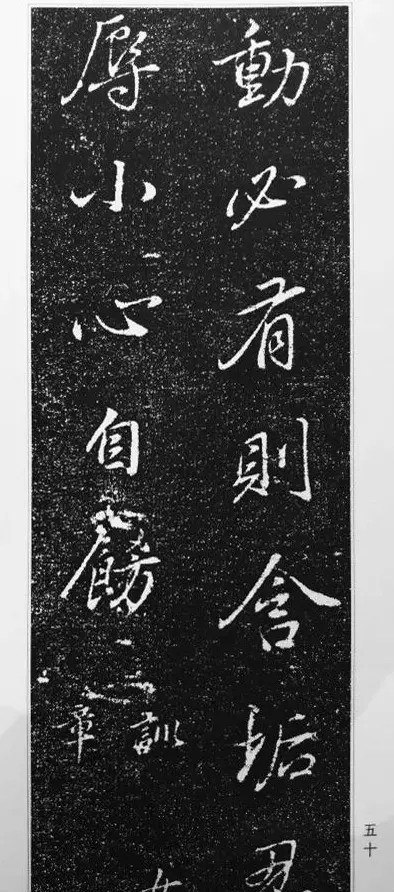 動必有則含垢忍
辱小心自勵
訓
章
五十